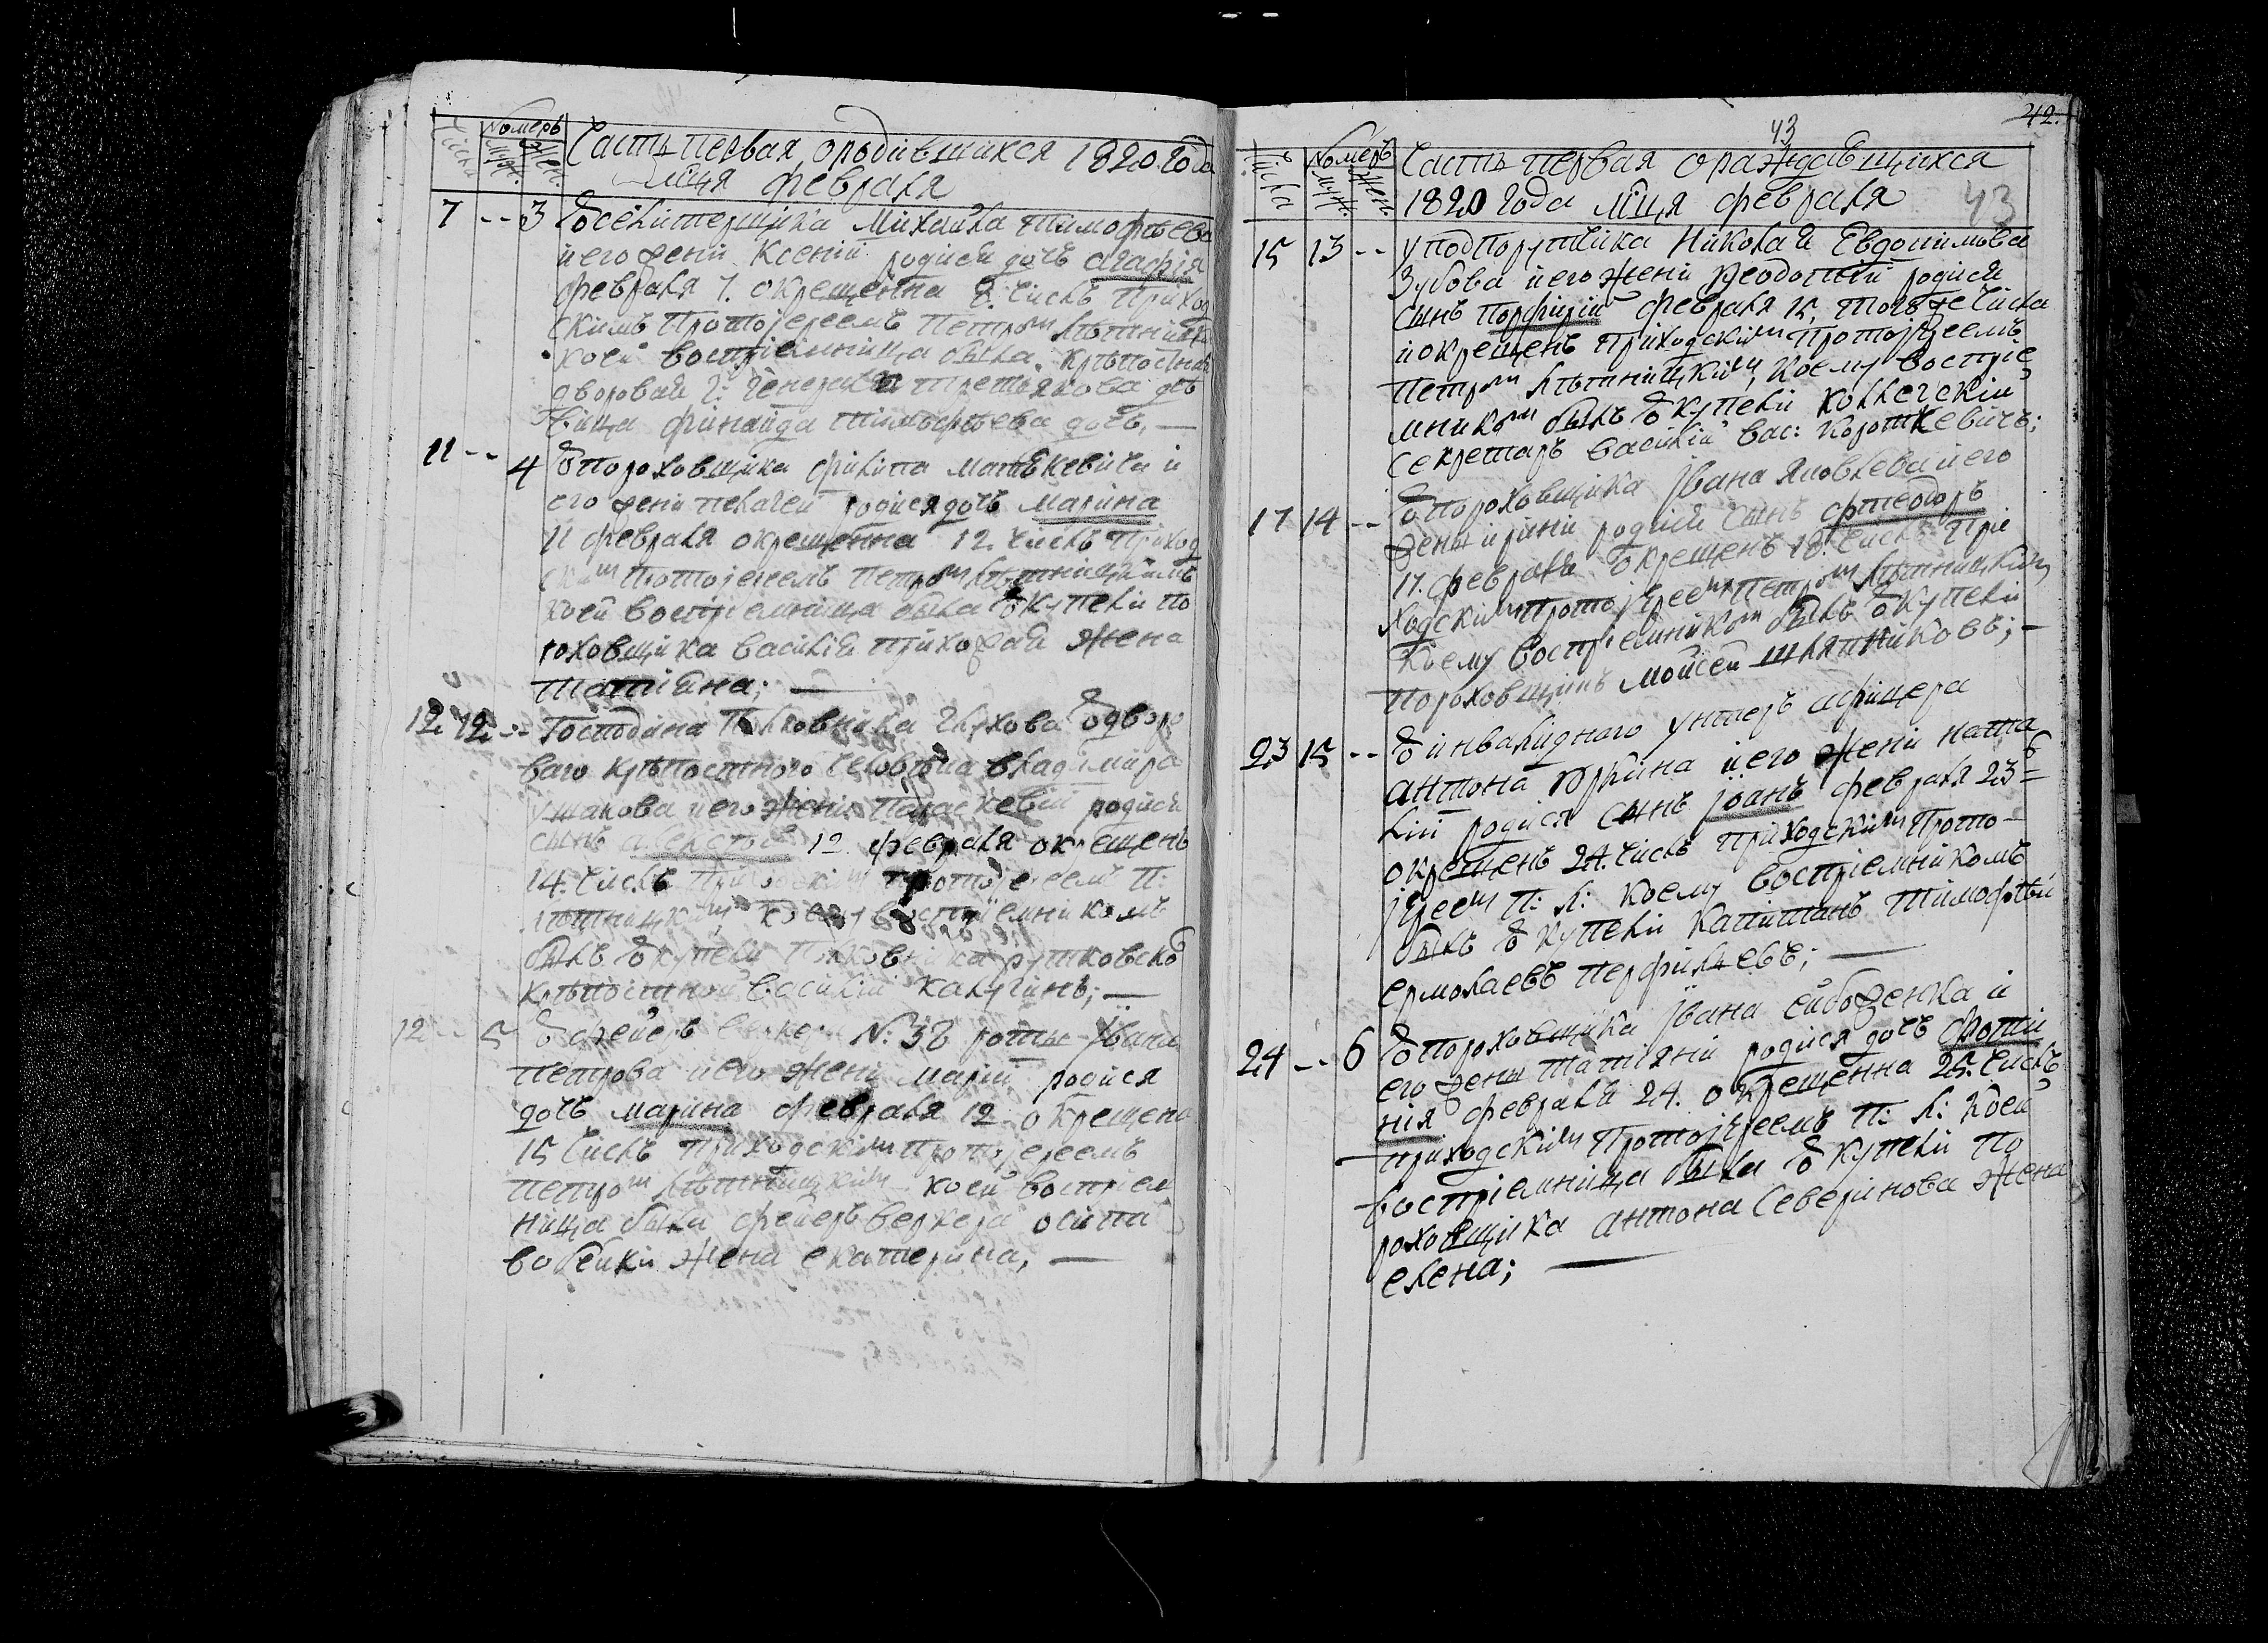 Числа
Номеръ
Муж.
Жен.
Часть первая, ородившихся 1820. Года
мця февраля
7 -- 3 Уселитерщика Михаила тимофѣева
иего жени Ксеніи родися дочъ агафія
февраля 7. окрещенна 8. числъ Приход
скимъ Протоіереемъ Петромъ Лѣтницки
коей воспріемница была крѣпостная
дворовая Г: Генерала третьякова дѣ
вица финаида тимофѣева дочъ, —
11 -- 4 Упороховщика филипа мацкевича и
его жени пелагеи родися дочъ марина
11 февраля окрещенна 12. числъ Приход
скимъ Протоіереемъ Петромъ Лѣтницкимъ
коей воспріемница была Укупели по
роховщика василія прихожая жена
Татіяна; —
12. 12. -- Господина Полковника Глухова Удворо
ваго крѣпостного человѣка владимира
ушакова иего жени Параскевіи родися
сынъ 12 февраля окрещенъ
14. числъ Приходскимъ Протоіереемъ П:
Лѣтницкимъ коему воспріемникомъ
былъ Укупели Полковника рутковскаго
крѣпостной василій Калугинъ; —
12 -- 5 Уфейерверкера №: 38 роты Ивана
Петрова иего жени маріи родися
дочъ марина февраля 12 окрещена
15 числъ Приходскимъ Протоіереемъ
Петромъ Лѣтницкимъ коей воспріем
ница была фейерверкера осипа
жена екатерина, —
42.
43
Числа
Номеръ
Муж.
Жен.
Часть первая ораждавшихся
1820 Года мця февраля
43
15 13 -- уподпорутчика Николая Евдокимова
Зубова иего жени Феодосіи родися
сынъ порфирій февраля 15, тогоже числа
иокрещенъ Приходскимъ Протоіереемъ
Петромъ Лѣтницкимъ, коему воспріе
мникомъ былъ Укупели коллегскій
секретаръ василій вас: Короткевичъ;
17 14 -- Упороховщика Івана яковлева иего
жены ирини родися сынъ фтеодоръ
17. февраля окрещенъ 18. числъ При
ходскимъ Протоіереемъ Петромъ Лѣтницкимъ
коему воспріемникомъ былъ Укупели
Пороховщикъ мойсей шляпниковъ; —
23 15 -- Уинвалиднаго унтеръ афицера
антона юркина иего жени ната
ліи родися сынъ іоанъ февраля 23
окрещенъ 24. числъ приходскимъ Прото-
іереемъ П: Л: коему воспріемникомъ
былъ Укупели Капитанъ тимофѣй
ермолаевъ перфильевъ; —
24 -- 6 Упороховщика Івана и
его жены татіяни родися дочъ Фоти
нія февраля 24. окрещенна 25. числъ
приходскимъ Протоіереемъ П: Л: коей
воспріемница была Укупели По
роховщика антона Северінова жена
елена; —